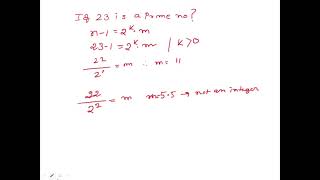 If 23 is a prime no?
n-1 = 2^k · m
23-1 = 2^k · m | k>0
22/2^1 = m ∴ m = 11
22/2^2 = m m=5.5 → not an integer